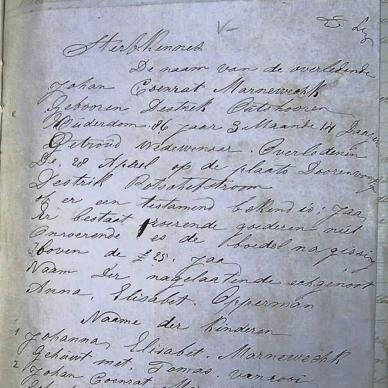 Sterbkennes
De naam van de overledende
Johan Coenrat Marneweehk
Gebooren Destrik Outshooren
Ouderdom 86 jaar 3 Maande 14
Getroud Wedewenaar. Overledenin
De. 28 April op de plaats Doorn
Destrik Potschefstroom
of er een testamend bekend is; Jaa
Er bestaat roerende goederen niet
Onroerende es de boedel na gissing
boven de £ 25. Jaa
Naam der nagelaatende echgenoot
Anna. Elisabet. Opperman
Naame der Kinderen
1 Johanna, Elisabet. Marneweehk
Gehuwt met, Tomas. vanrooi
2 Johan Coenrat